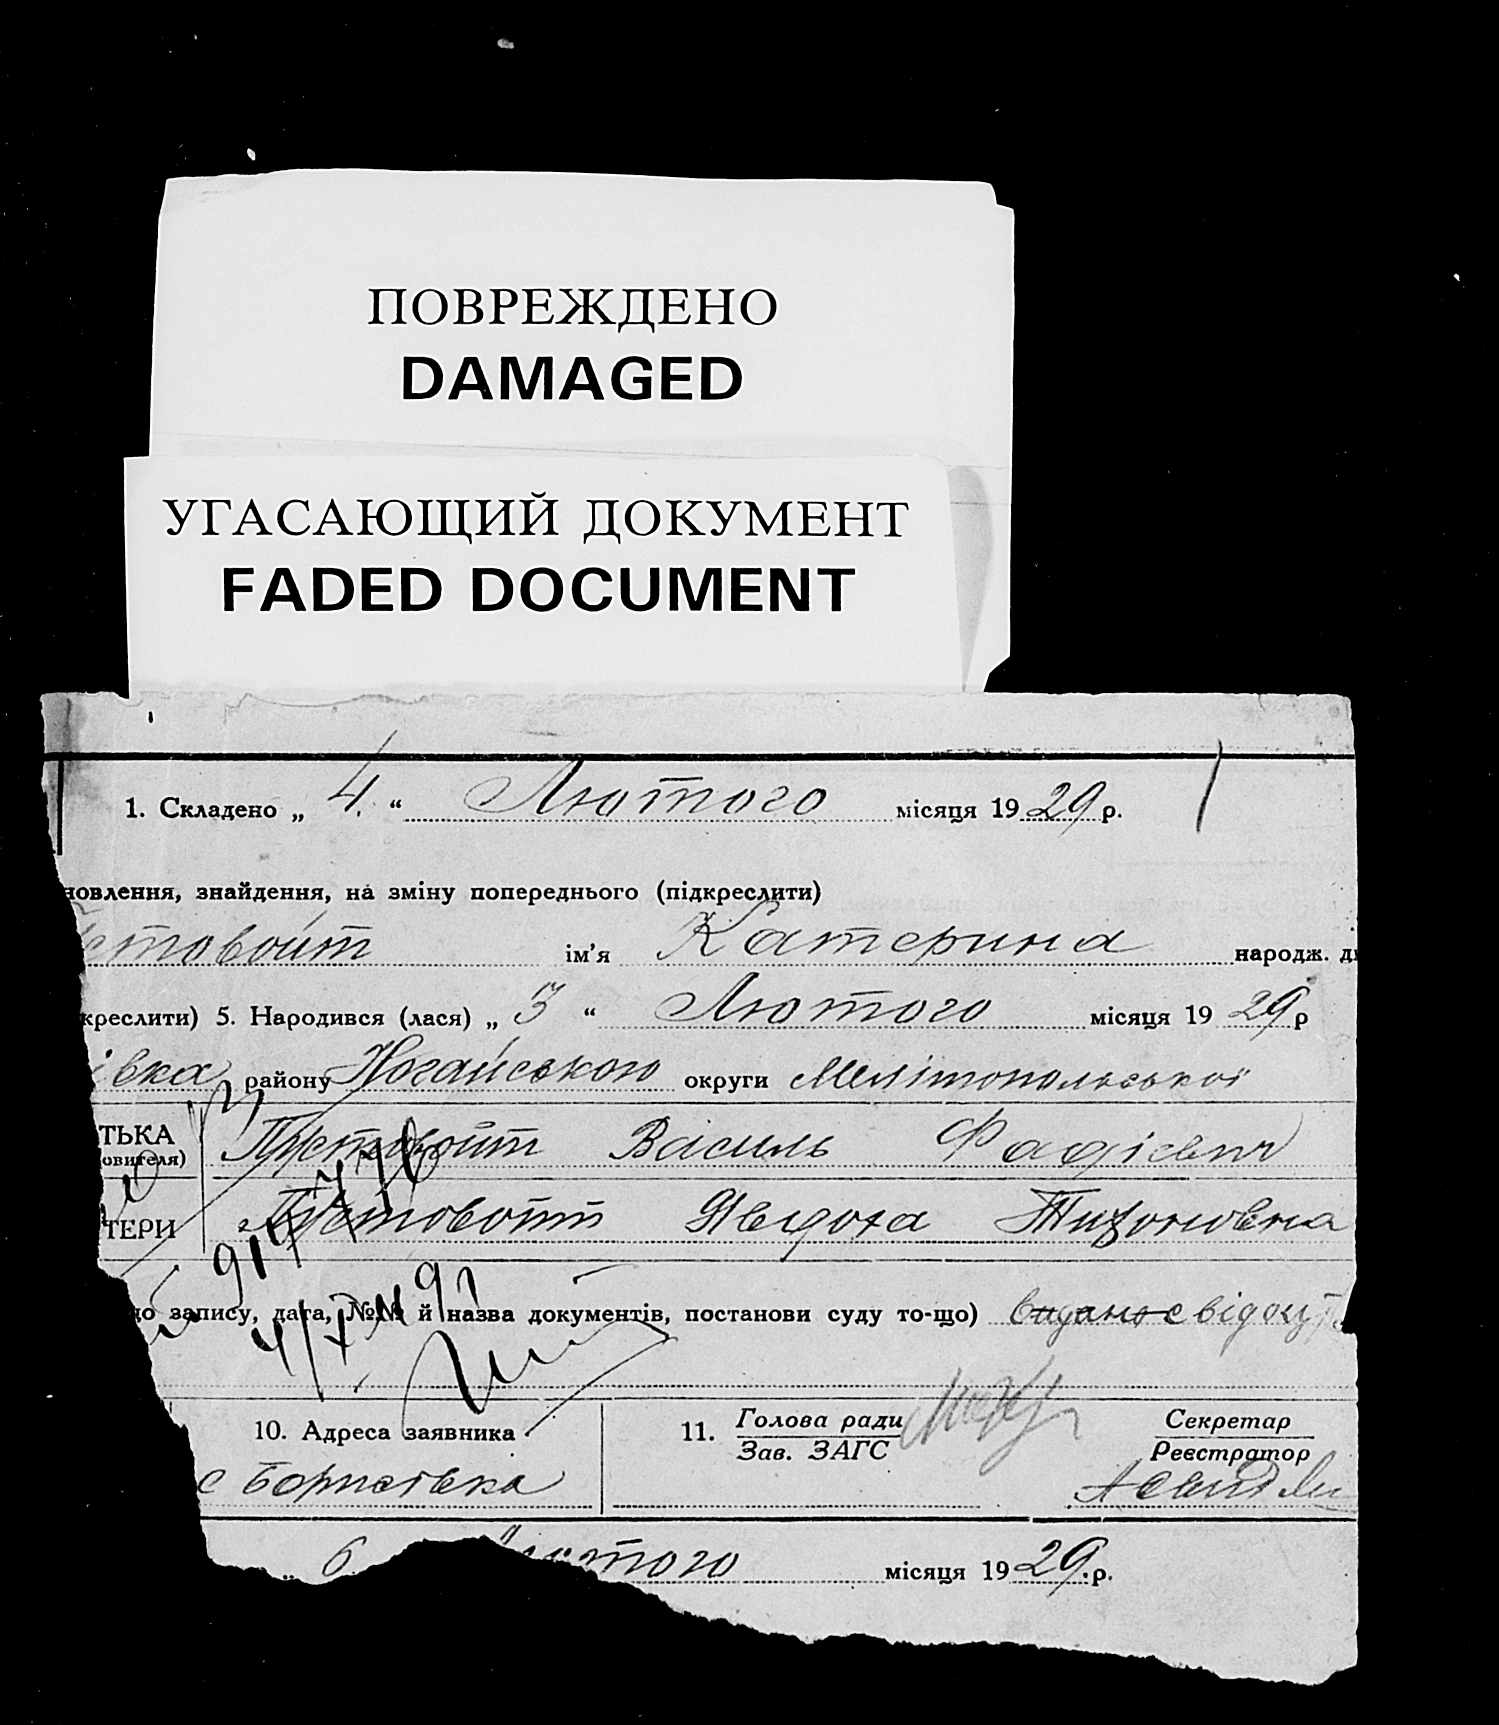 ПОВРЕЖДЕНО
DAMAGED
УГАСАЮЩИЙ ДОКУМЕНТ
FADED DOCUMENT
1. Складено „ 4 “ Лютого місяця 1929 р.
новлення, знайдення, на зміну попереднього (підкреслити)
стовойт ім'я Катерина народж. ді
креслити) 5. Народився (лася) „ 3 “ Лютого місяця 1929 р
івка району Ногайського округи Мелітопольської
ТЬКА
овителя) Пустовойт Василь
ТЕРИ Пустовойт Явдоха Тихоновна
до запису, дата, №№ й назва документів, постанови суду то-що) видано
10. Адреса заявника 11. Голова ради Секретар
Зав. ЗАГС Реєстратор
с Борисівка
„ 6 “ Лютого місяця 1929 р.